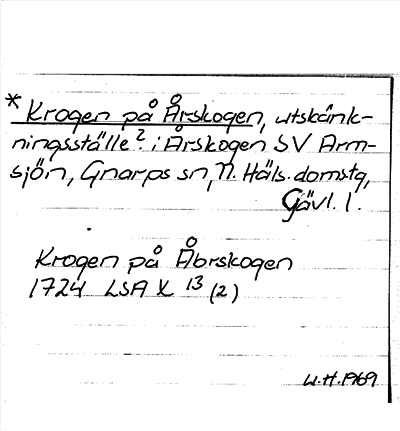 * Krogen på Årskogen, utskänk-
ningsställe? i Årskogen SV Arm-
sjön, Gnarps sn, N. Häls. domstg,
Gävl. l.
Krogen på Åbrskogen
1724 LSA X 13 (2)
W.H. 1969